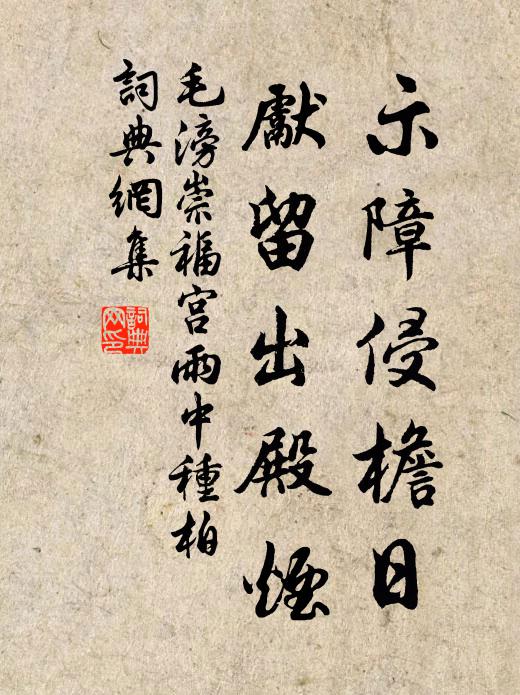 示障侵檐日
獻留出殿煙
毛滂崇福宮雨中種柏
詞典網集
詞典網印